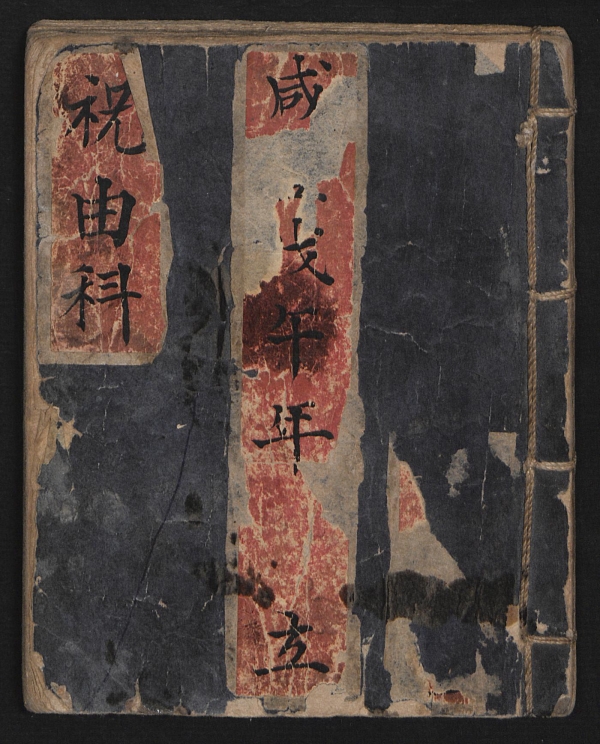 咸戊午年立
祝由科